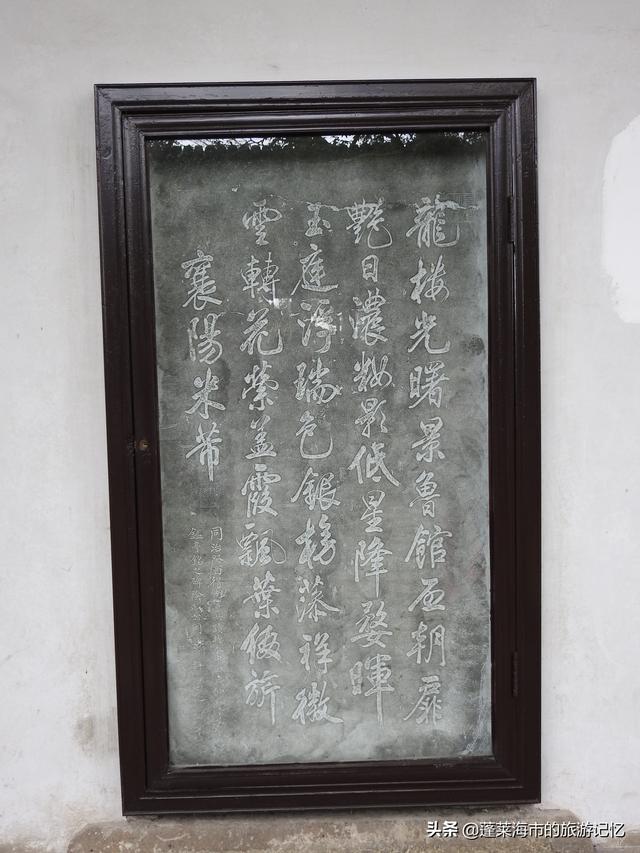 龍楼光曙景魯館启朝扉
艷日濃妝影低星降婺暉
玉庭浮瑞色銀榜藻祥徽
雲轉花縈盖霞飄葉綴旂
襄陽米芾
同治
头条 @蓬莱海市的旅游记忆